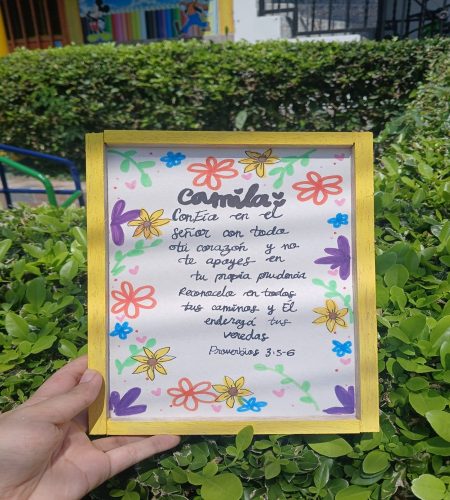 Camila
Confía en el
Señor con todo
tú corazón y no
te apoyes en
tu propia prudencia
Reconocelo en todos
tus caminos y El
enderezá tus
veredas
Proverbios 3:5-6